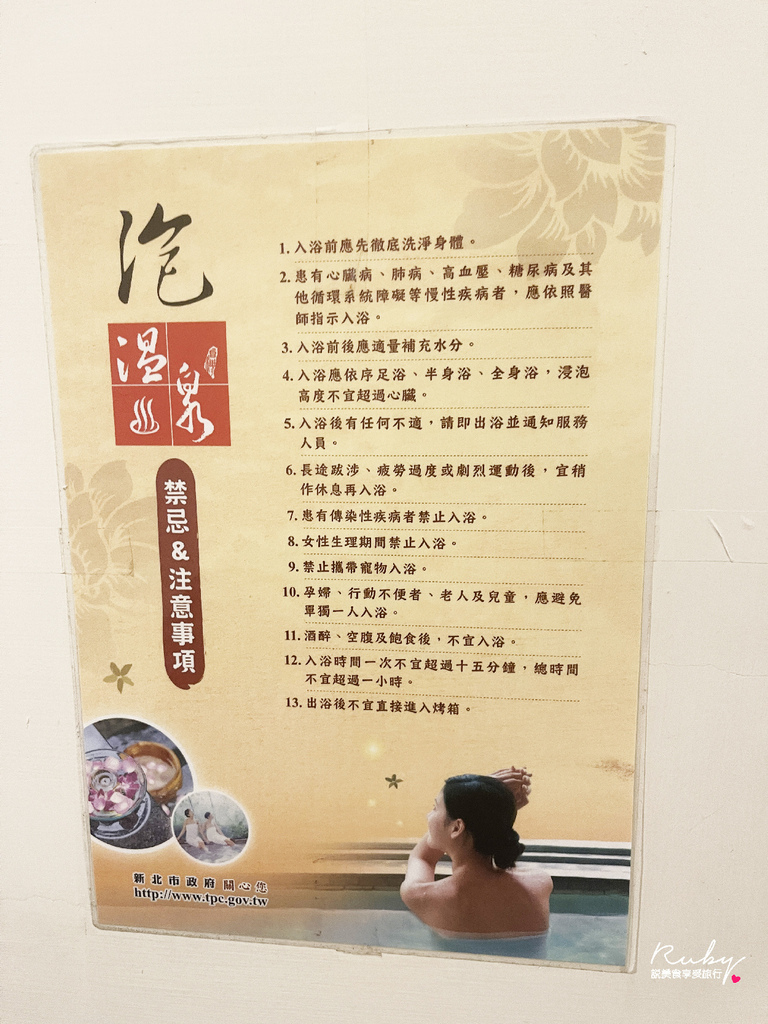 泡
溫泉
禁忌&注意事項
1. 入浴前應先徹底洗淨身體。
2. 患有心臟病、肺病、高血壓、糖尿病及其
他循環系統障礙等慢性疾病者，應依照醫
師指示入浴。
3. 入浴前後應適量補充水分。
4. 入浴應依序足浴、半身浴、全身浴，浸泡
高度不宜超過心臟。
5. 入浴後有任何不適，請即出浴並通知服務
人員。
6. 長途跋涉、疲勞過度或劇烈運動後，宜稍
作休息再入浴。
7. 患有傳染性疾病者禁止入浴。
8. 女性生理期間禁止入浴。
9. 禁止攜帶寵物入浴。
10. 孕婦、行動不便者、老人及兒童，應避免
單獨一人入浴。
11. 酒醉、空腹及飽食後，不宜入浴。
12. 入浴時間一次不宜超過十五分鐘，總時間
不宜超過一小時。
13. 出浴後不宜直接進入烤箱。
新北市政府 關心您
http://www.tpc.gov.tw
Ruby
說美食享受旅行